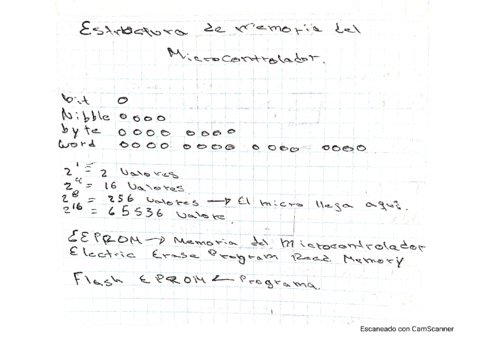 Estructura de memoria del
Microcontrolador.
bit 0
Nibble 0000
byte 0000 0000
word 0000 0000 0000 0000
2^1 = 2 Valores
2^4 = 16 Valores
2^8 = 256 Valores → El micro llega aquí.
2^16 = 65536 Valore.
EEPROM → Memoria del Microcontrolador
Electric Erase Program Read Memory
Flash EPROM ← Programa.
Escaneado con CamScanner